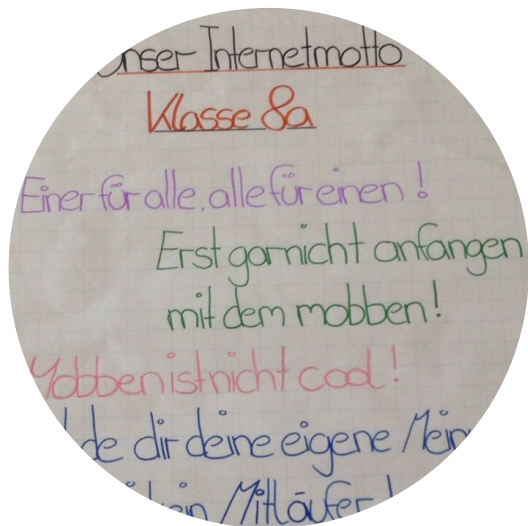 Unser Internetmotto
Klasse 8a
Einer für alle, alle für einen!
Erst garnicht anfangen
mit dem mobben!
Mobben ist nicht cool!
dir deine eigene
Mitläufer!